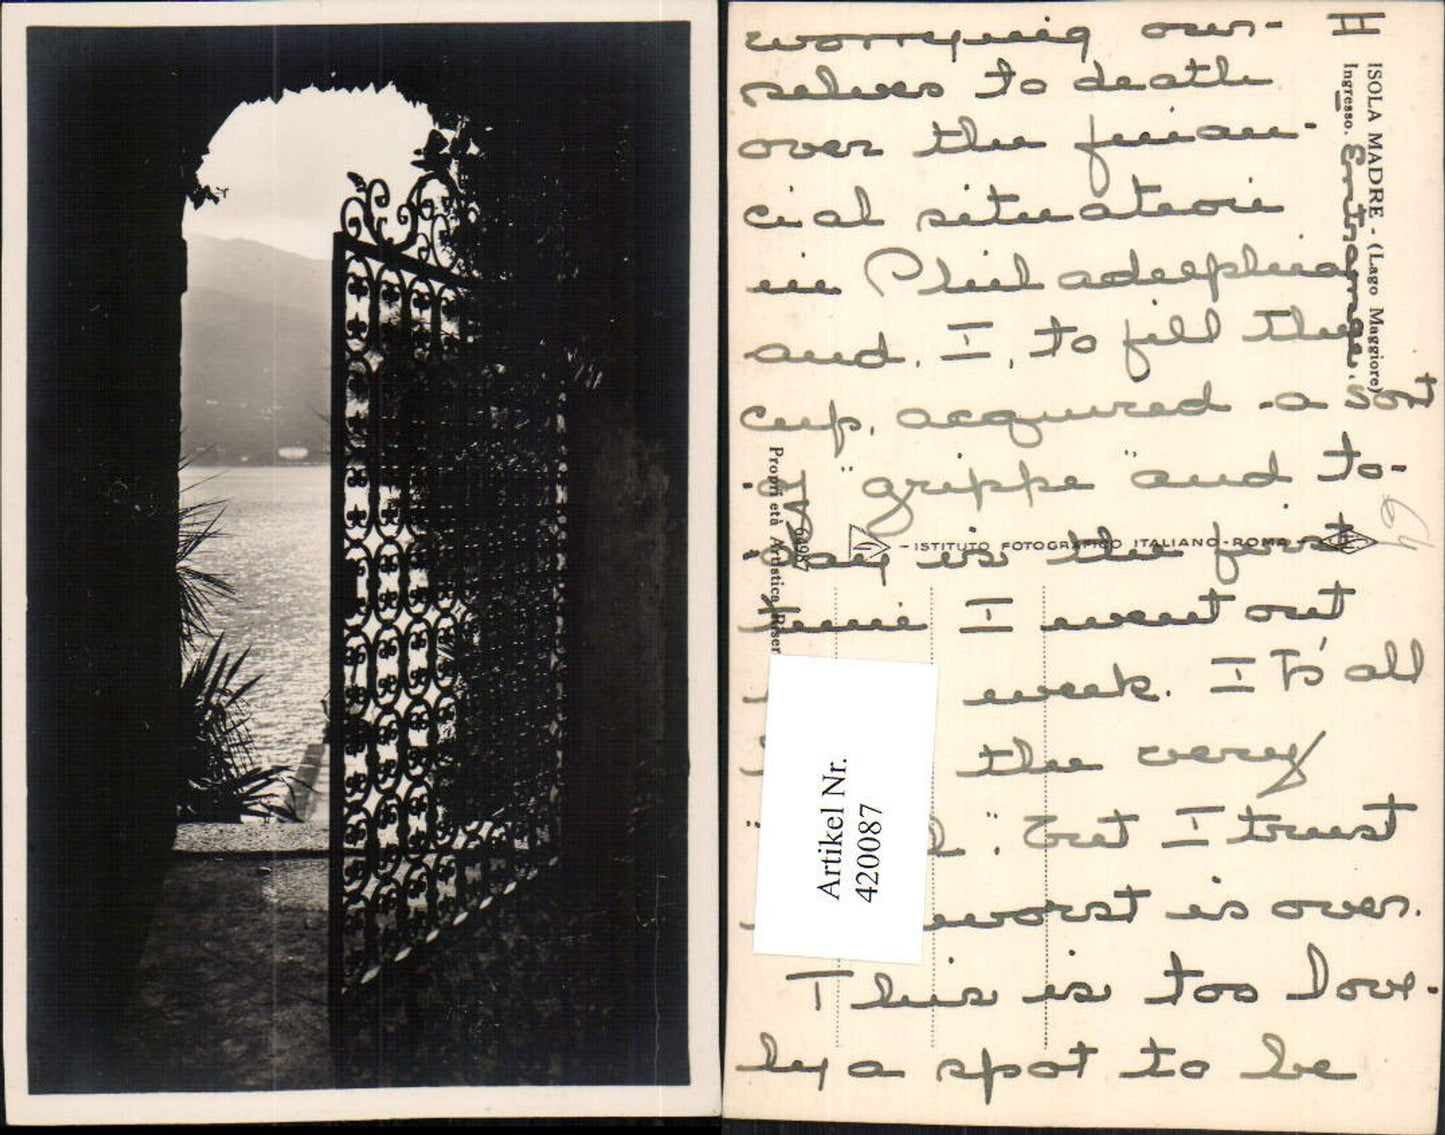 II
worrying our-
selves to death
over the finan-
cial situation
in Philadelphia
and, I, to fill the
cup, acquired a sort
of "grippe" and to-
day is the first
time I went out
week. I T's all
the very
." But I trust
worst is over.
This is too love-
ly a spot to be
ISOLA MADRE - (Lago Maggiore)
Ingresso. Entrance.
64
Proprietà Artistica Riser
64987
- ISTITUTO FOTOGRAFICO ITALIANO - ROMA -
Artikel Nr.
420087